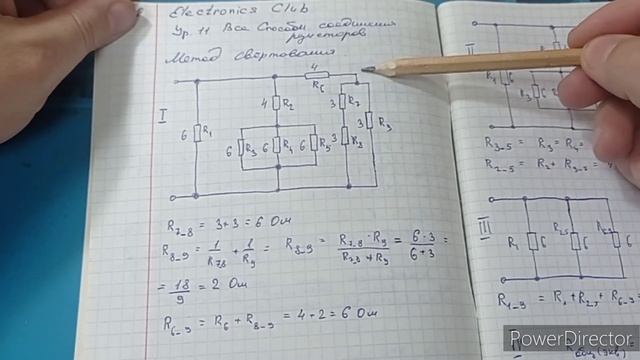 Electronics Club
Ур. 11 Все Способы соединения
резисторов
Метод свёртования
I
4
R6
4 R2
3 R7
6 R1
3 R9
6 R3 6 R4 6 R5 3 R8
R7-8 = 3+3 = 6 Ом
R8-9 = 1/R78 + 1/R9 = R8-9 = R7-8 · R9 / R7-8 + R9 = 6·3 / 6+3 =
= 18/9 = 2 Ом
R6-9 = R6 + R8-9 = 4+2 = 6 Ом
II
R3-5 = R3 = R4 =
R2-5 = R2 + R3-5 = 4
III
R1 6 R25 6 6
R1-9 = R1 + R2-5 + R6-9 =
PowerDirector